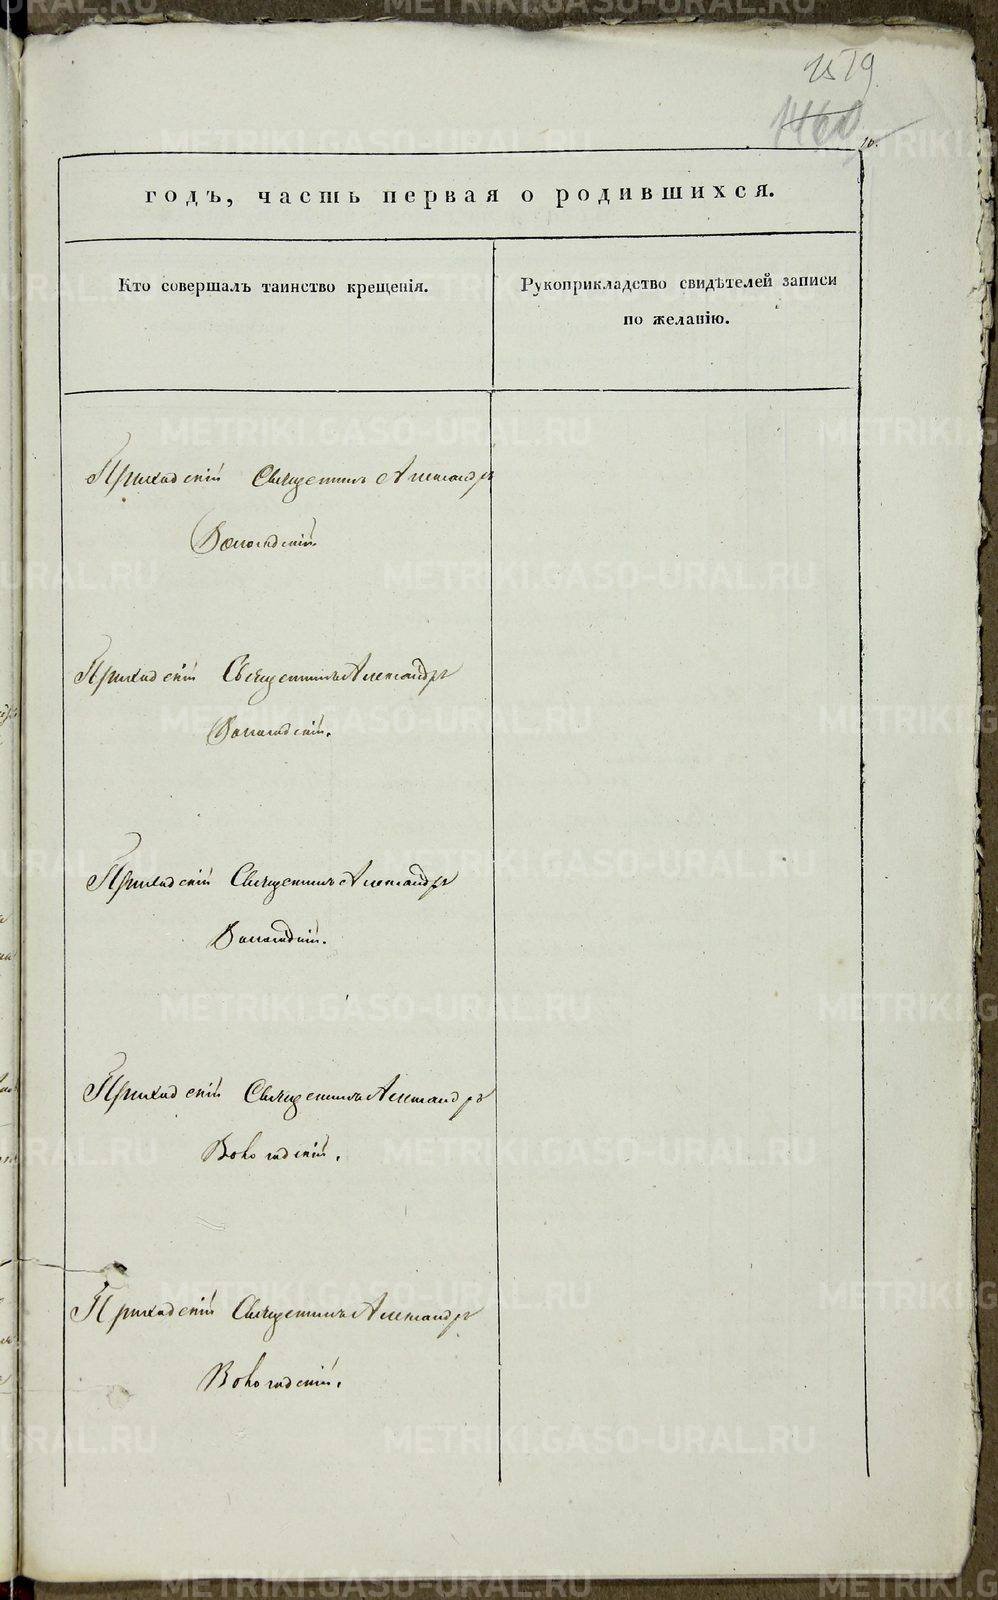 1579
1460
годъ, часть первая о родившихся.
Кто совершалъ таинство крещенія.
Рукоприкладство свидѣтелей записи
по желанію.
Приходскій Священникъ Александръ
Вологодскій
Приходскій Священникъ Александръ
Вологодскій.
Приходскій Священникъ Александръ
Вологодскій.
Приходскій Священникъ Александръ
Вологодскій.
Приходскій Священникъ Александръ
Вологодскій.
METRIKI.GASO-URAL.RU